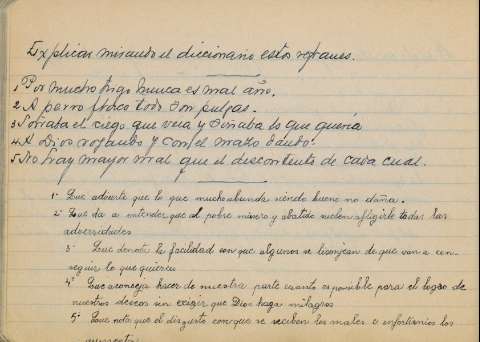 Explicar mirando el diccionario estos refranes.
1 Por mucho trigo nunca es mal año.
2 A perro flaco todo son pulgas.
3 Soñaba el ciego que veía y soñaba lo que quería
4 A Dios rogando y con el mazo dando.
5 No hay mayor mal que el descontento de cada cual.
1º Que advierte que lo que mucho abunda siendo bueno no daña.
2º Que da a entender que al pobre mísero y abatido suelen afligirle todas las
adversidades
3º Que denota la facilidad con que algunos se lisonjean de que van a con-
seguir lo que quieren
4º Que aconseja hacer de nuestra parte cuanto es posible para el logro de
nuestros deseos sin exigir que Dios haga milagros
5º Que nota que el disgusto con que se reciben los males o infortunios los